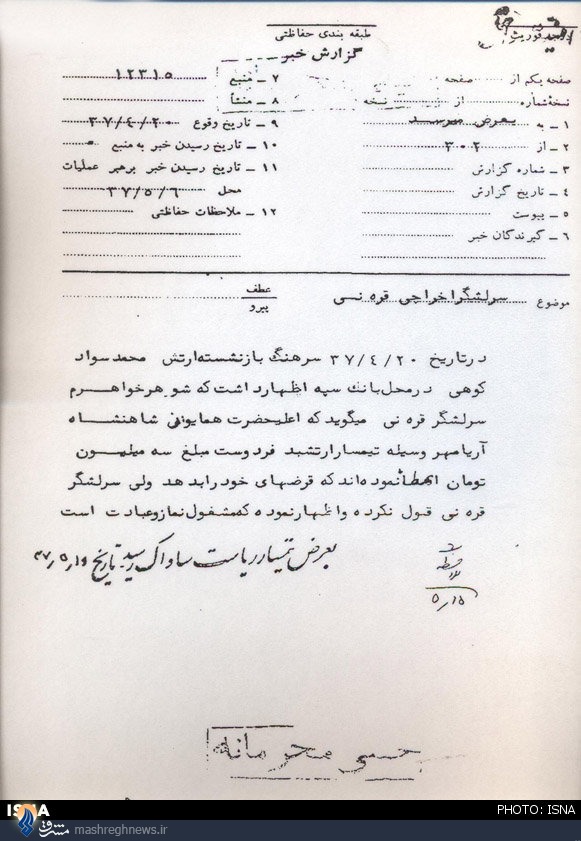 طبقه بندی حفاظتی
گزارش خبر
صفحه یکم از صفحه
نسخه شماره از نسخه
۱ ـ به بعرض میرسد
۲ ـ از ۳۰۲
۳ ـ شماره گزارش
۴ ـ تاریخ گزارش
۵ ـ پیوست
۶ ـ گیرندگان خبر
۷ ـ منبع ۱۲۳۱۵
۸ ـ منشأ
۹ ـ تاریخ وقوع ۳۷/۴/۲۰
۱۰ ـ تاریخ رسیدن خبر به منبع
۱۱ ـ تاریخ رسیدن خبر برهبر عملیات
محل ۳۷/۵/۶
۱۲ ـ ملاحظات حفاظتی
موضوع سرلشگر اخراجی قره نی
عطف
پیرو
در تاریخ ۳۷/۴/۲۰ سرهنگ بازنشسته ارتش محمد سواد
کوهی در محل بانک سپه اظهار داشت که شوهر خواهرم
سرلشگر قره نی میگوید که اعلیحضرت همایونی شاهنشاه
آریامهر وسیله تیمسار ارتشبد فردوست مبلغ سه میلیون
تومان اعطا نموده اند که قرضهای خود را بدهد ولی سرلشگر
قره نی قبول نکرده و اظهار نموده که مشغول نماز و عبادت است
بعرض تیمسار ریاست ساواک رسید. تاریخ ۳۷/۵/۱۵
۵/۱۵
خیلی محرمانه
ISNA
PHOTO: ISNA
مشرق mashreghnews.ir